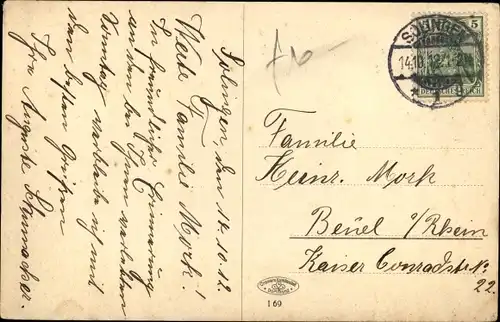 Solingen, den 14.10.12.
Werte Familie Mork!
In freundlicher Erinnerung
an den bei Ihnen verlebten
Sonntag verbleibe ich mit
den besten Grüßen
Ihre Auguste
SOLINGEN
14.10.12
5
DEUTSCHES REICH
Familie
Heinr. Mork
Beuel a/Rhein
Kaiser Conradstr. No.
22.
169